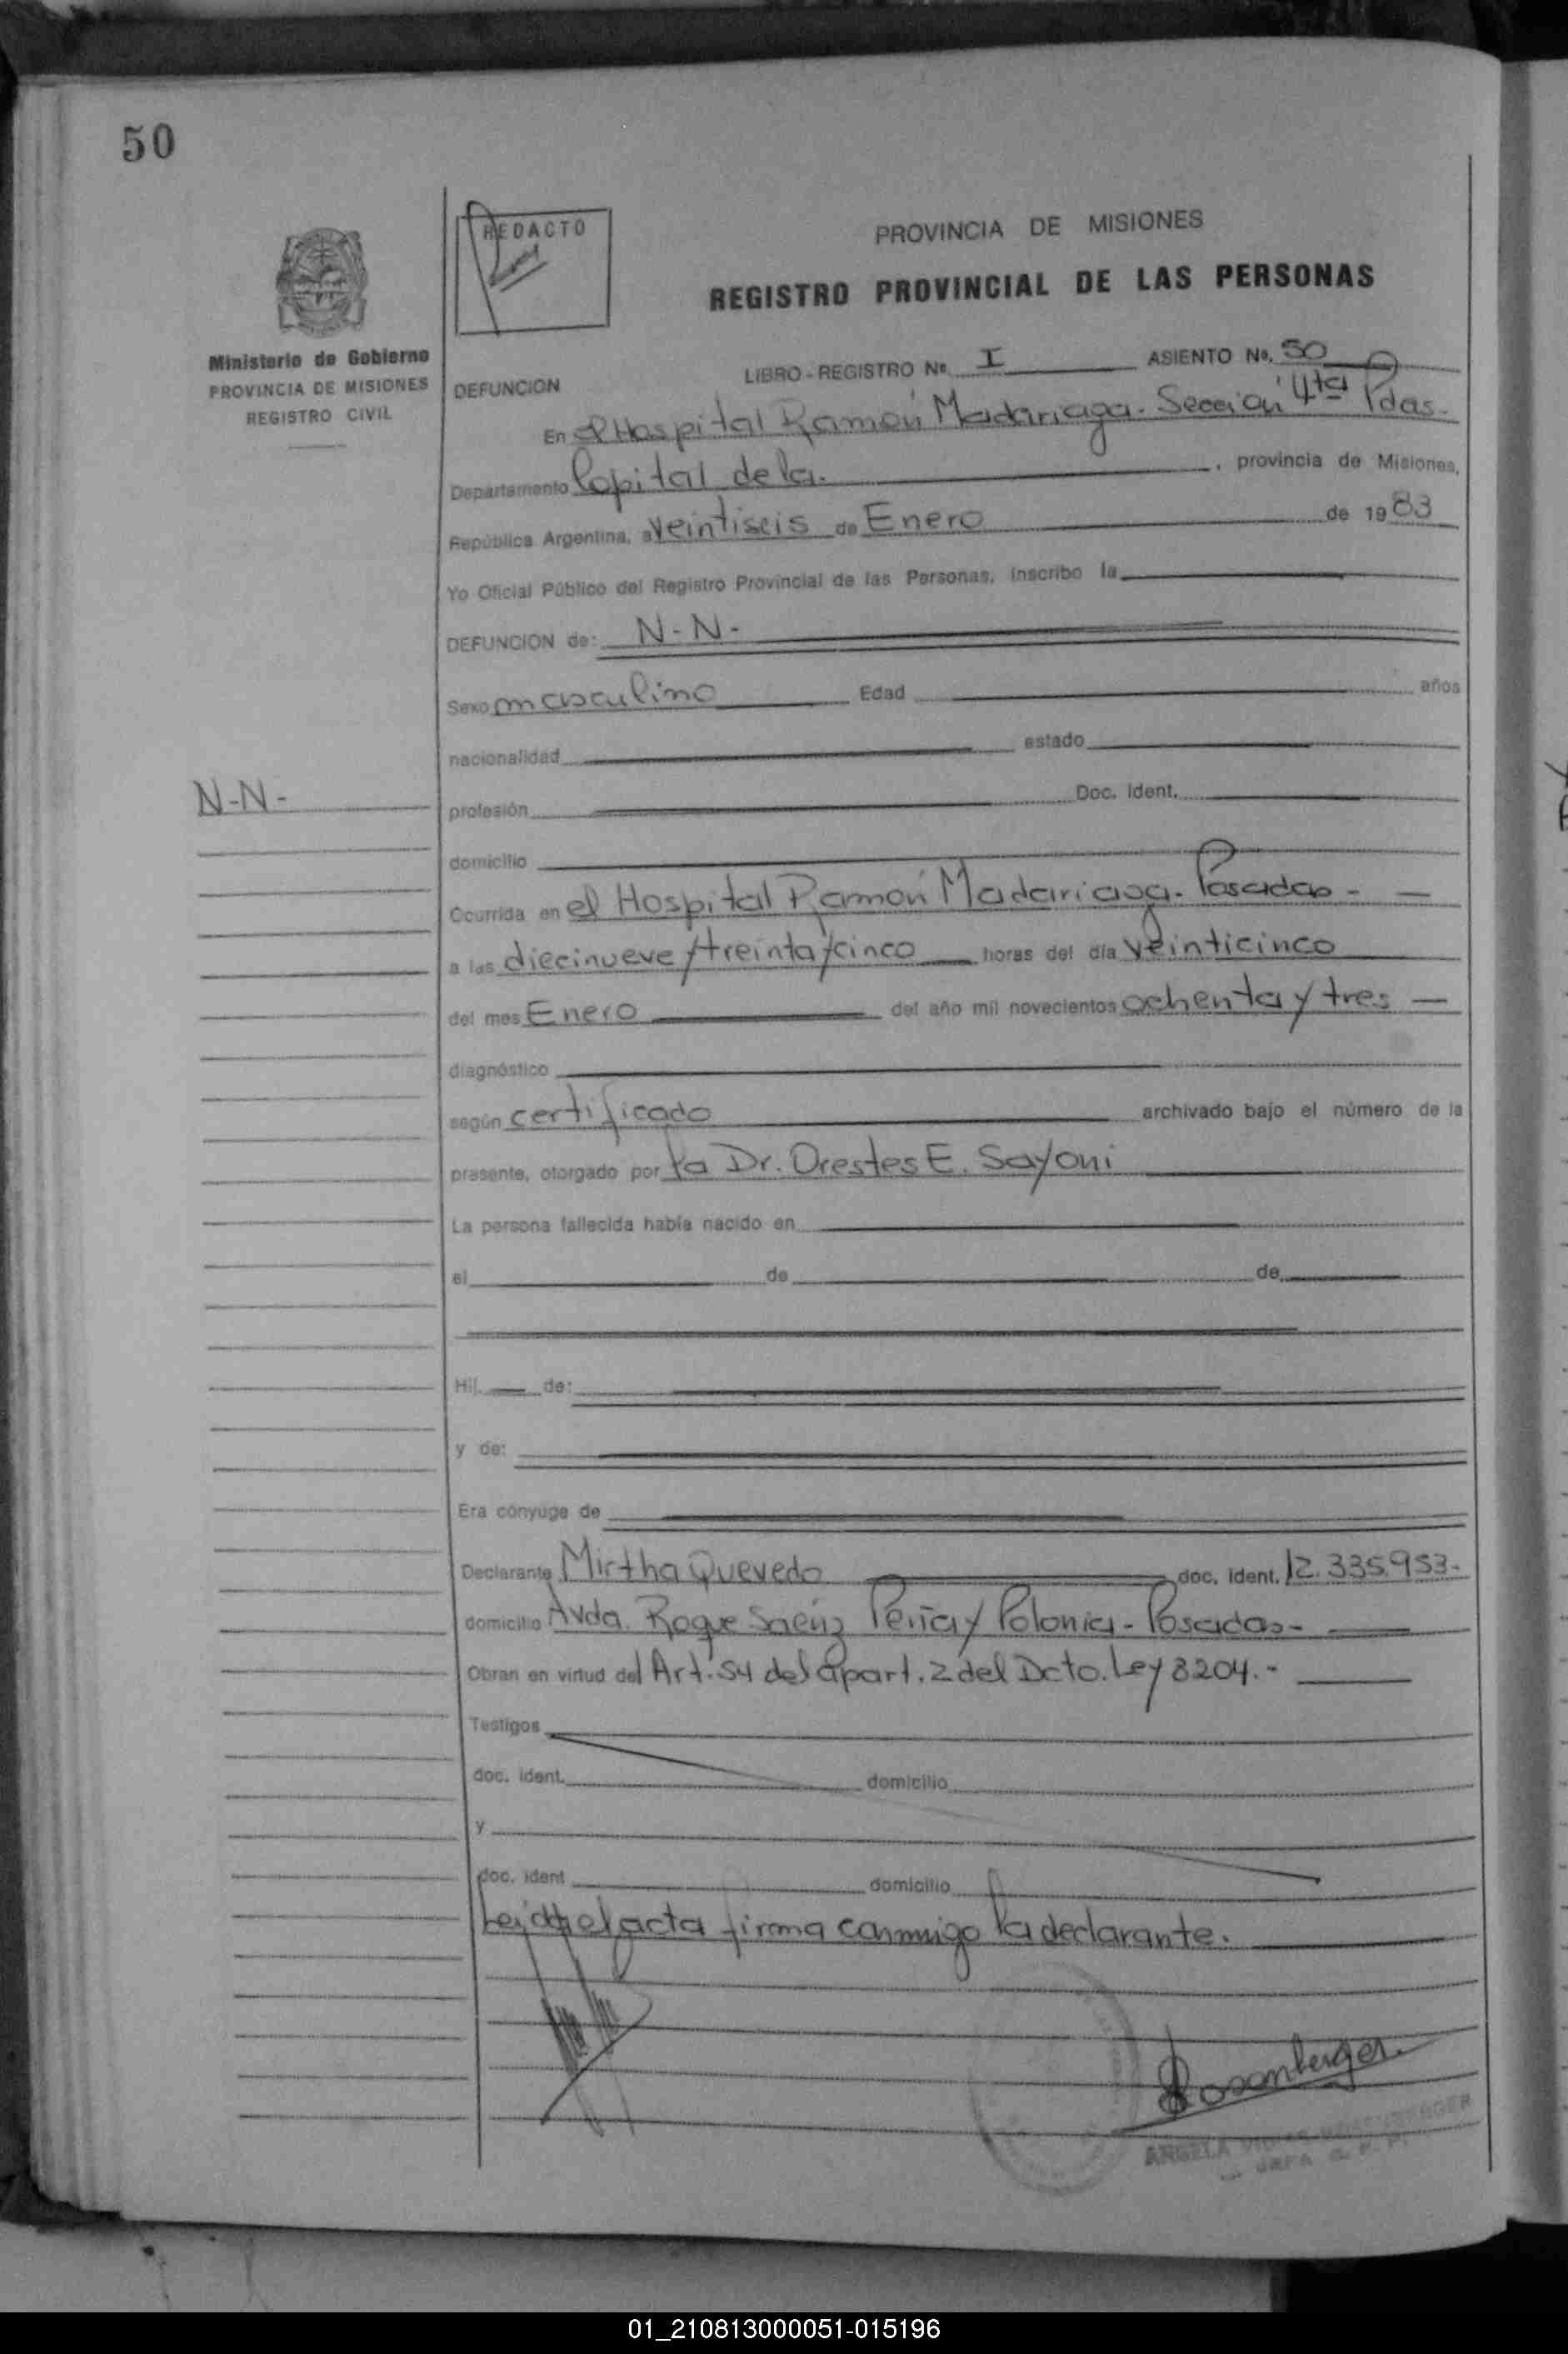 50
REDACTO
PROVINCIA DE MISIONES
REGISTRO PROVINCIAL DE LAS PERSONAS
Ministerio de Gobierno
PROVINCIA DE MISIONES
REGISTRO CIVIL
LIBRO - REGISTRO Nº. I ASIENTO Nº. 50
DEFUNCION
En el Hospital Ramón Madariaga. Sección 4ta Pdas.
Departamento Capital de la. , provincia de Misiones,
República Argentina, a veintiseis de Enero de 1983
Yo Oficial Público del Registro Provincial de las Personas, inscribo la
DEFUNCION de: N-N-
Sexo masculino Edad años
nacionalidad estado
N-N-
profesión Doc. Ident.
domicilio
Ocurrida en el Hospital Ramón Madariaga. Posadas-
a las diecinueve/treinta y cinco horas del día veinticinco
del mes Enero del año mil novecientos ochenta y tres
diagnóstico
según certificado archivado bajo el número de la
presente, otorgado por la Dr. Orestes E. Sayoni
La persona fallecida había nacido en
el de de
Hij. de:
y de:
Era conyuge de
Declarante Mirtha Quevedo doc. ident. 12.335.953-
domicilio Avda. Roque Saenz Peña y Polonia - Posadas-
Obran en virtud del Art. 54 del apart. 2 del Dcto. Ley 8204.-
Testigos
doc. ident. domicilio
y
doc. ident domicilio
Leida el acta firma conmigo la declarante.
Rosenberger.
ANGELA ROSENBERGER
JEFA
01_210813000051-015196